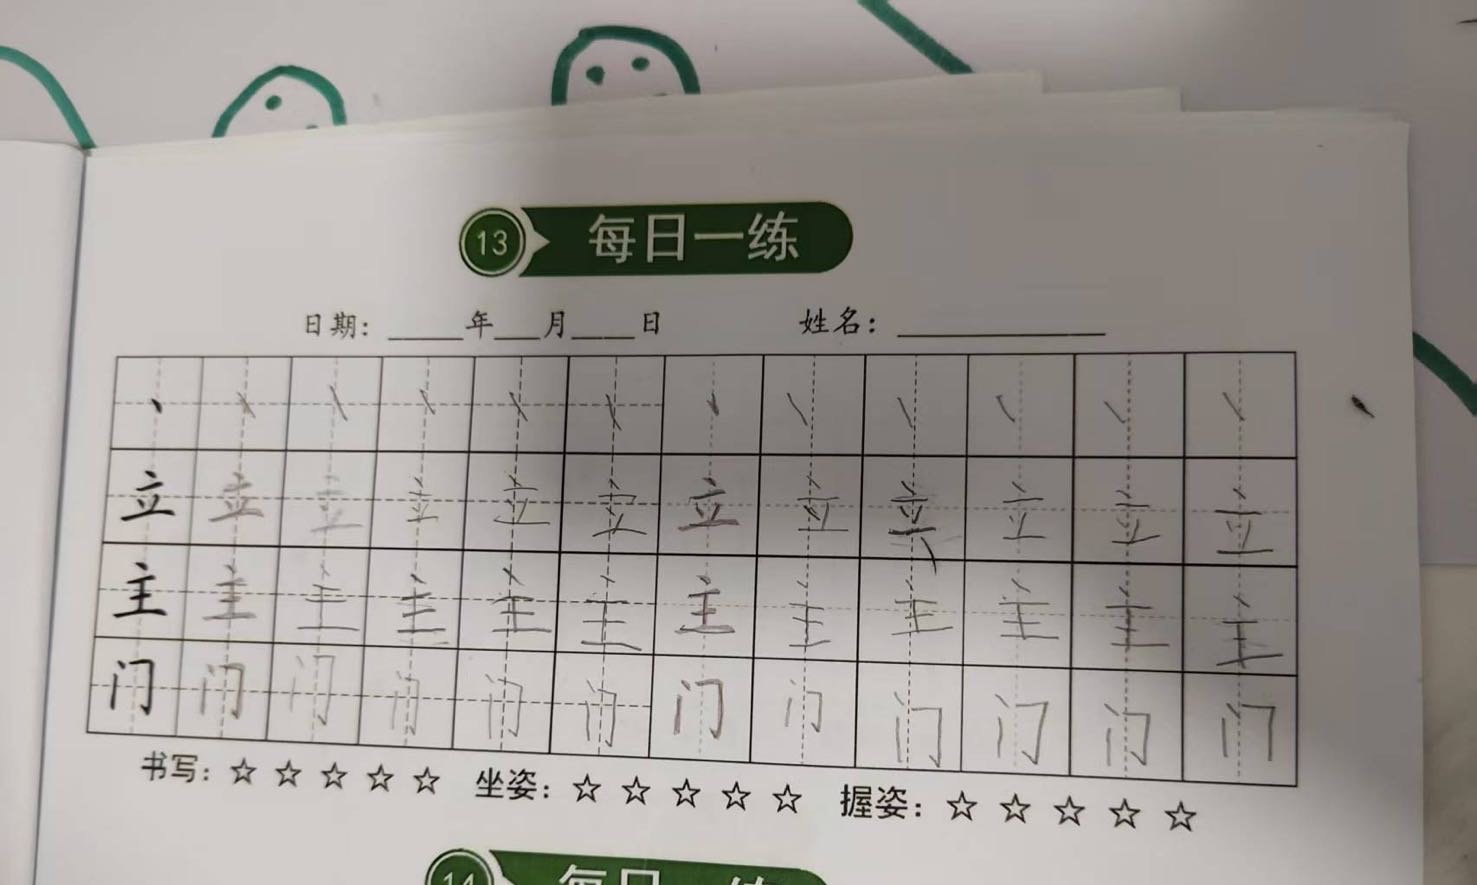 13 每日一练
日期：____年___月___日 姓名：__________
丶 丶 丶 丶 丶 丶 丶 丶 丶 丶 丶 丶
立 立 立 立 立 立 立 立 立 立 立 立
主 主 主 主 主 主 主 主 主 主 主 主
门 门 门 门 门 门 门 门 门 门 门 门
书写：☆ ☆ ☆ ☆ ☆ 坐姿：☆ ☆ ☆ ☆ ☆ 握姿：☆ ☆ ☆ ☆ ☆
14 每日一练